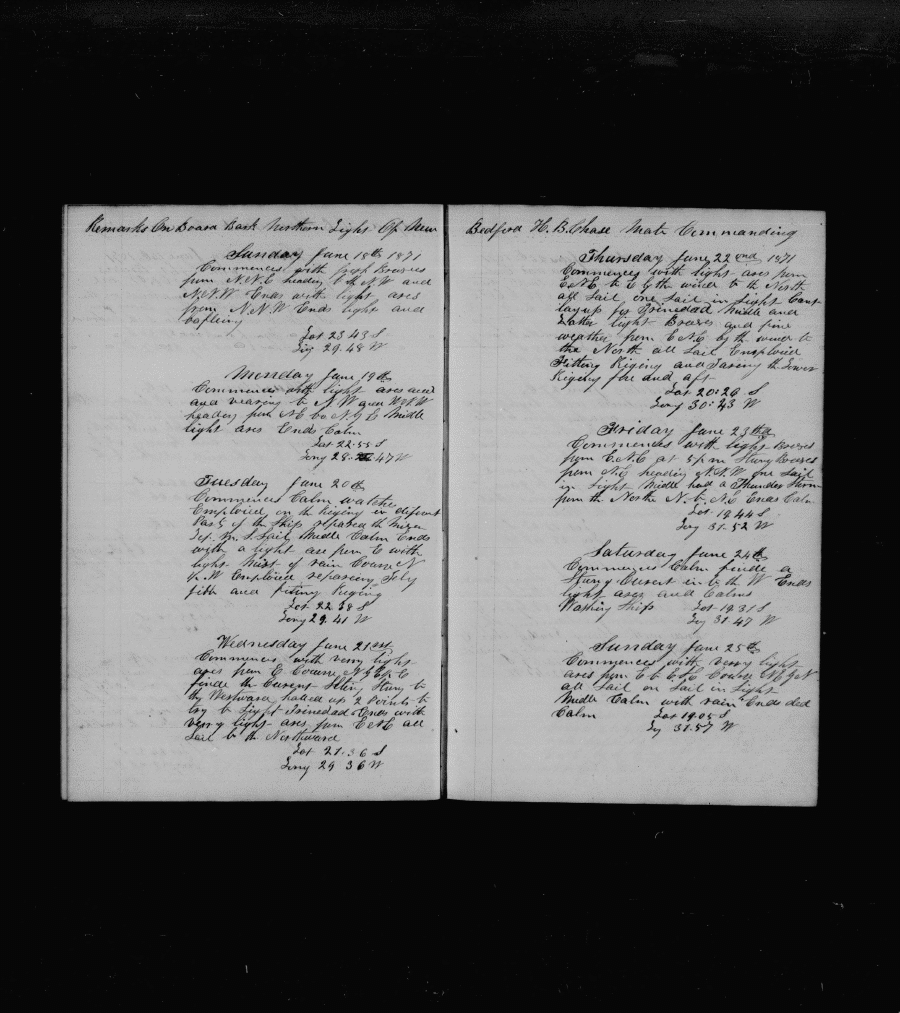 Remarks On Board Bark Northern Light Of New
Sunday June 18th 1871
Commences with fresh Breeses
from N.N.E heading to the NW and
N.N.W Ends with light ares
from N.N.W Ends light and
baffling
Lat 23 43 S
Lig 29.48 W
Monday June 19th
Commences with light ares
and vearing to NW and WNW
heading from NE to N Middle
light ares Ends Calm
Lat 22.55 S
Long 28. 47 W
Tuesday June 20th
Commences Calm watches
Employed on the Riging in diferent
Parts of the Ship repared the Mizen
Top. m. S. Sail Middle Calm Ends
with a light are from E with
light Mist of rain Course N
by W Employed reparing
jibb and fiting Riging
Lat 22 28 S
Long 29.41 W
Wednesday June 21st
Commences with verry light
ares from E Course N
finde the Current Seting Strong to
the Westward halled up 2 Points to
try to Sight Trinedad Ends with
verry light ares from ENE all
Sail to the Northward
Lat 21.36 S
Long 29 36 W
Bedford H. B. Chase Mate Commanding
Thursday June 22nd 1871
Commences with light ares from
ENE to E by the wind to the North
all Sail one Sail in Sight Cant
lay up for Trinedad Middle and
Latter light Breeses and fine
weather from ENE by the wind to
the North all Sail Employed
Fitting Riging and Taring the Lower
Riging fore and aft
Lat 20:26 S
Long 30:43 W
Friday June 23th
Commences with light Breeses
from ENE at 5 pm Strong Breeses
from NE heading N.N.W one Sail
in Sight Middle had a Thunder Storm
from the North N. to N.E Ends Calm
Lat 19.44 S
Log 31.52 W
Saturday June 24th
Commences Calm finde a
Strong Current in to the W Ends
light ares and Calms
Washing Ship Lat 19.31 S
Log 31.47 W
Sunday June 25th
Commences with verry light
ares from E to Course
all Sail on Sail in Sight
Middle Calm with rain Ends ded
Calm Lat 19.05 S
Lg 31.57 W